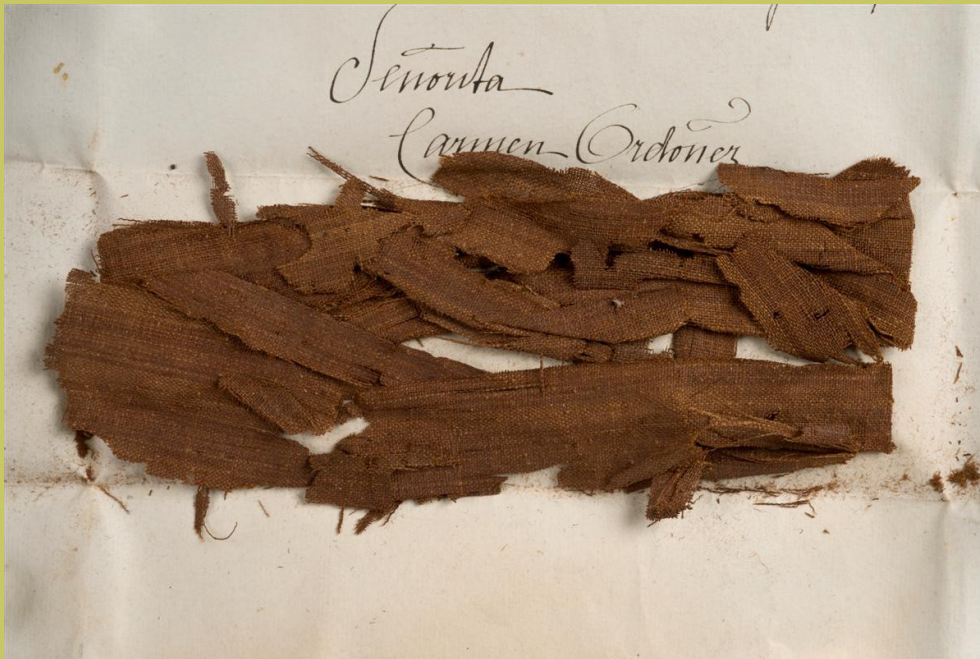 Señorita
Carmen Ordoñez